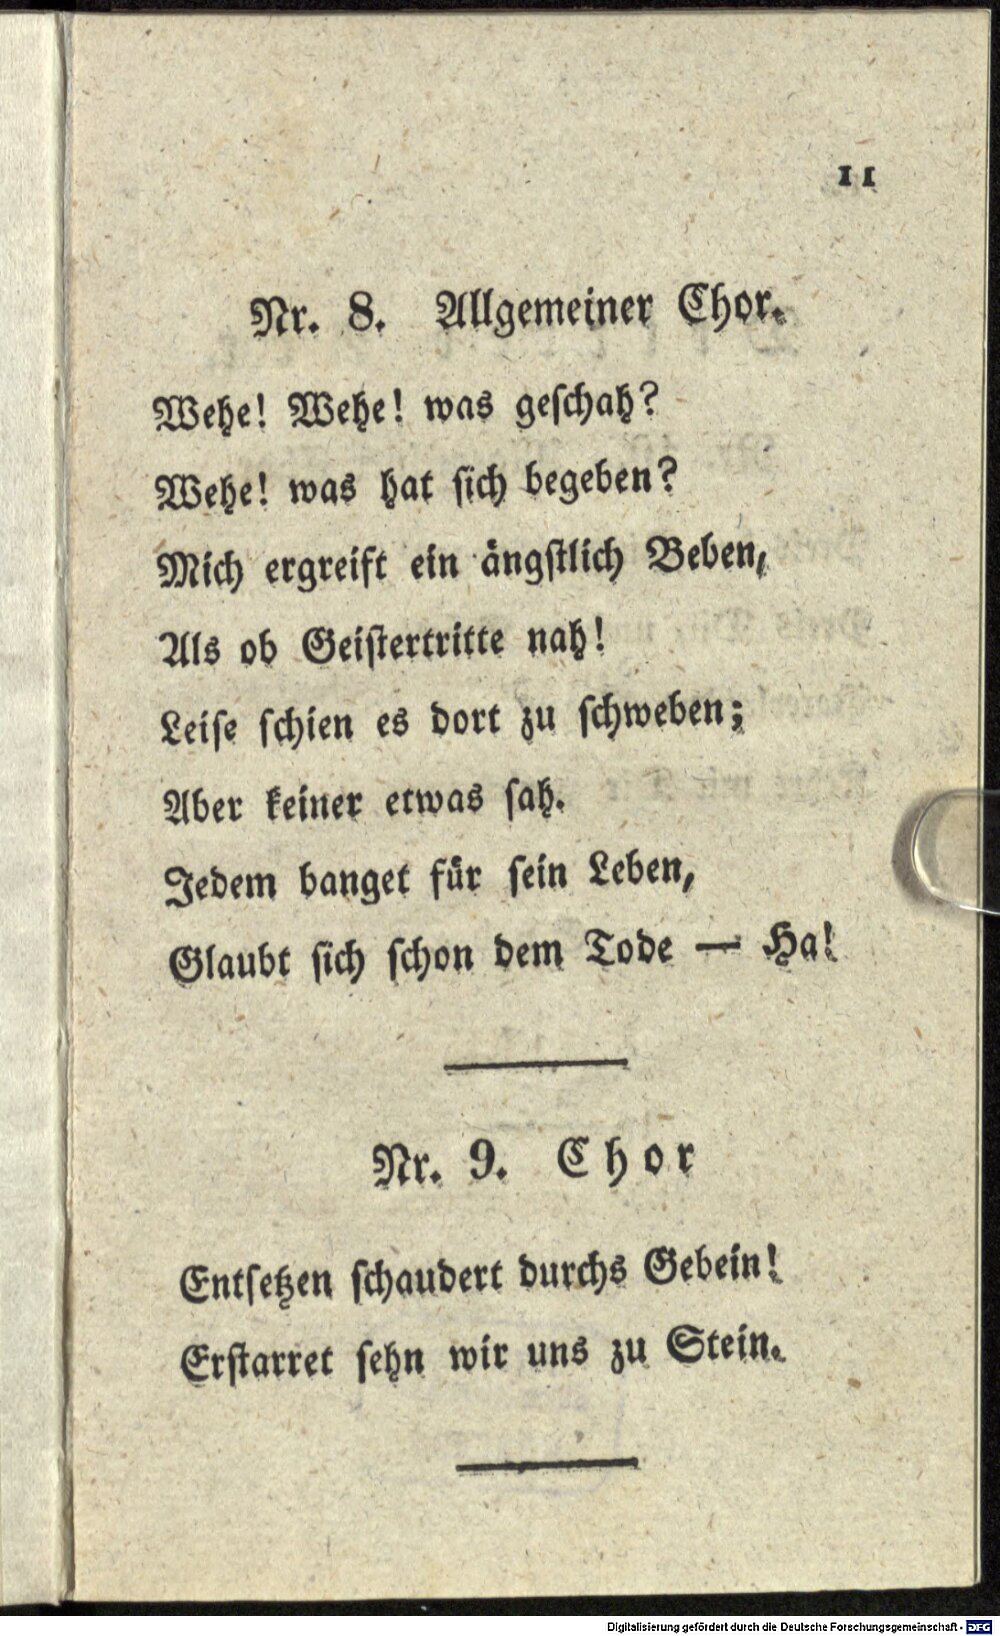 11
Nr. 8. Allgemeiner Chor.
Wehe! Wehe! was geſchah?
Wehe! was hat ſich begeben?
Mich ergreift ein ängſtlich Beben,
Als ob Geiſtertritte nah!
Leiſe ſchien es dort zu ſchweben;
Aber keiner etwas ſah.
Jedem banget für ſein Leben,
Glaubt ſich ſchon dem Tode — Ha!
Nr. 9. Chor
Entſetzen ſchaudert durchs Gebein!
Erſtarret ſehn wir uns zu Stein.
Digitalisierung gefördert durch die Deutsche Forschungsgemeinschaft - DFG